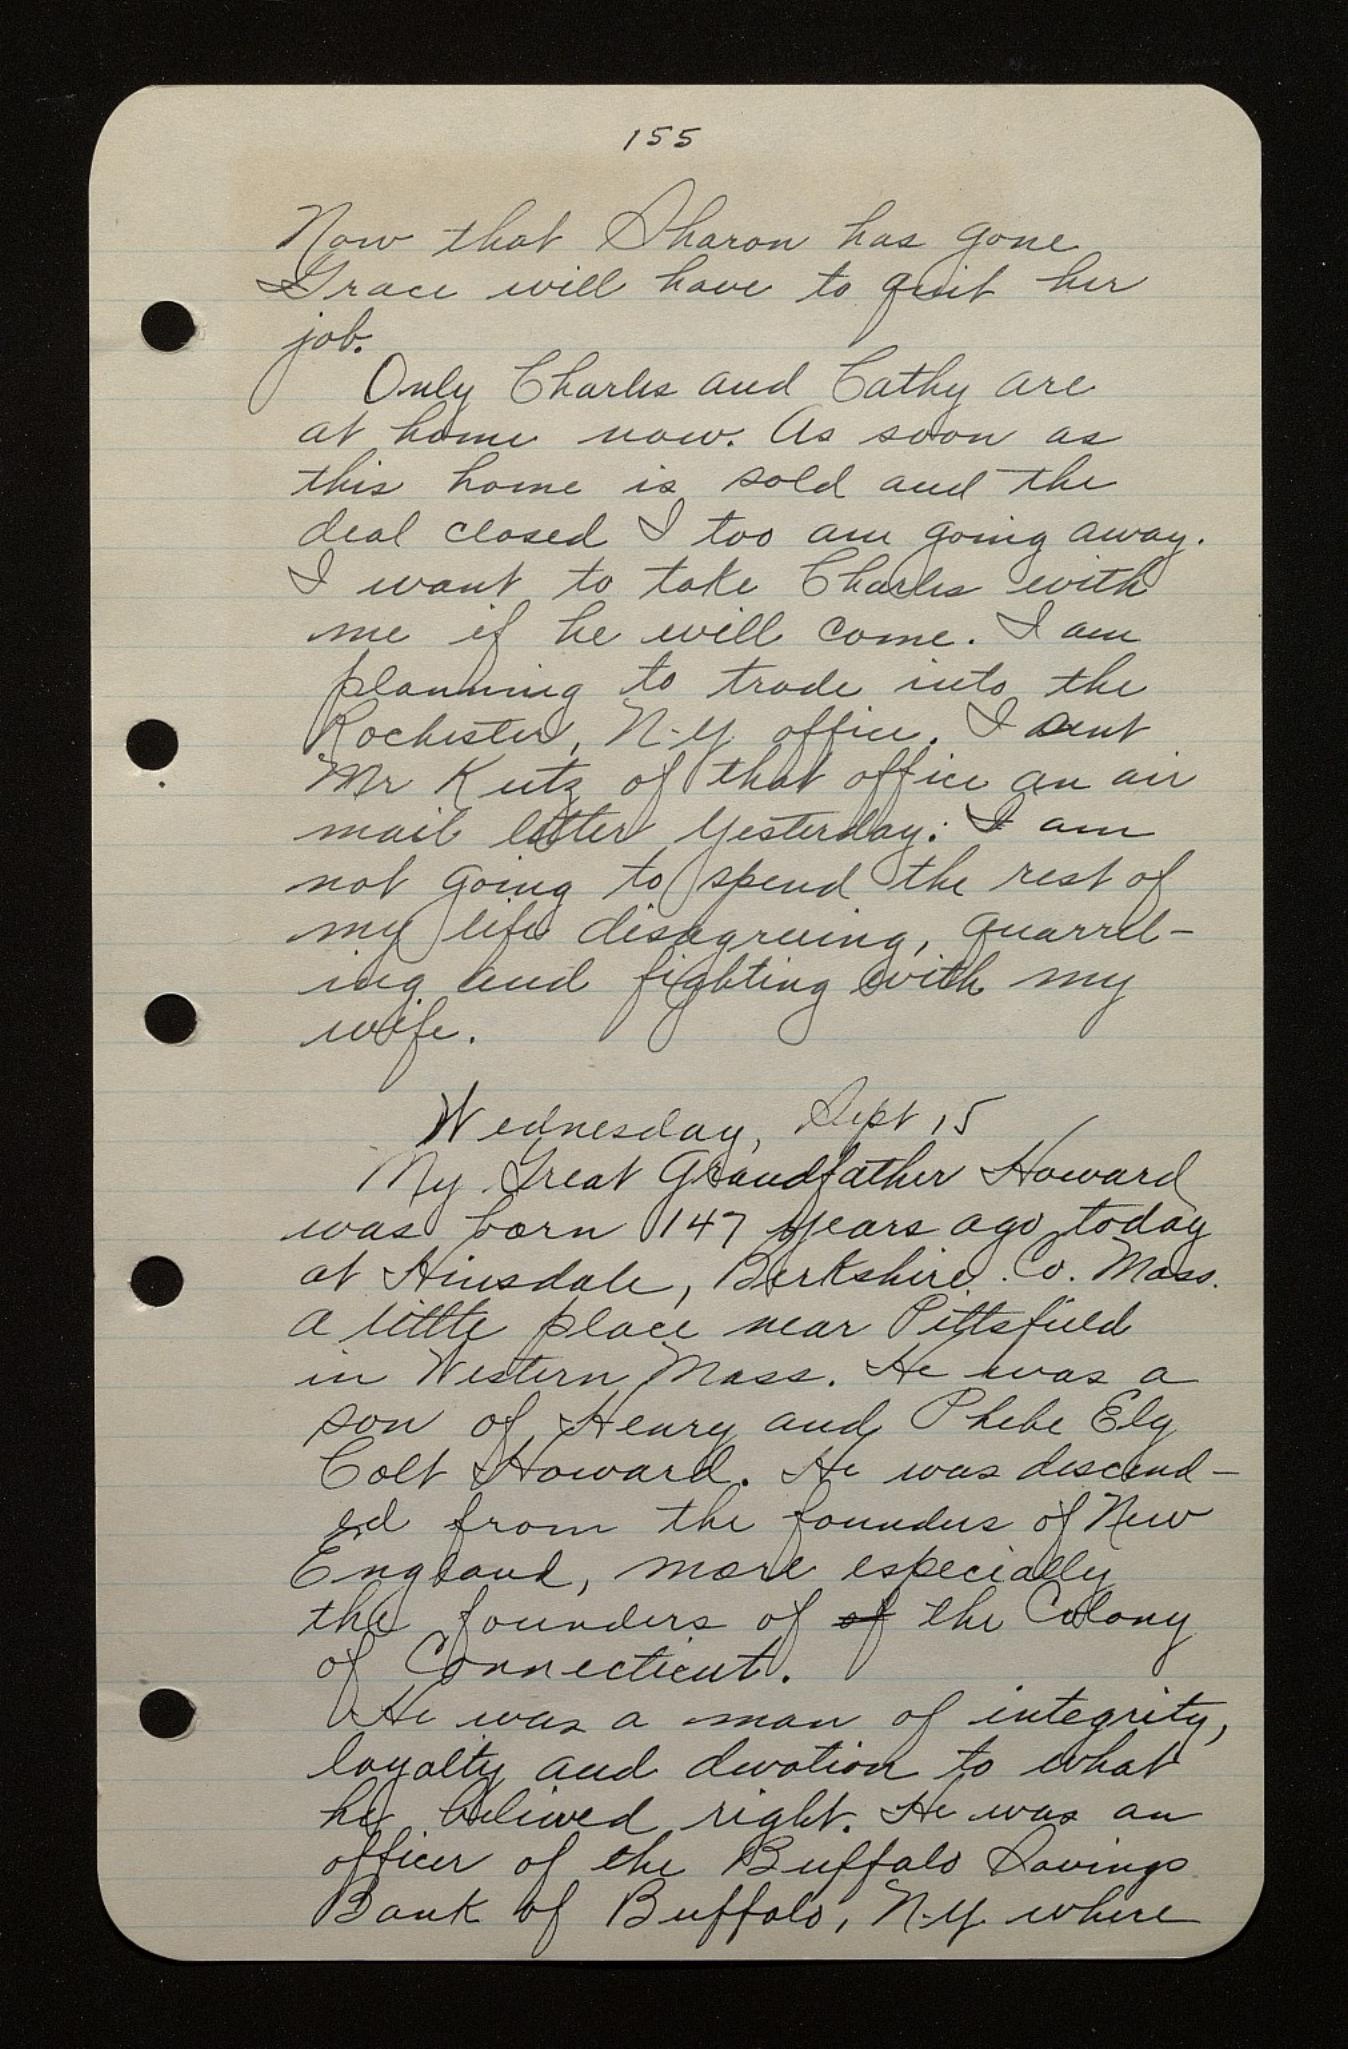 155
Now that Sharon has gone
Grace will have to quit her
job.
Only Charles and Cathy are
at home now. As soon as
this home is sold and the
deal closed I too am going away.
I want to take Charles with
me if he will come. I am
planning to trade into the
Rochester, N-Y office. I sent
Mr Kutz of that office an air
mail letter yesterday. I am
not going to spend the rest of
my life disagreeing, quarrel-
ing and fighting with my
wife.
Wednesday, Sept 15
My Great Grandfather Howard
was born 147 years ago today
at Hinsdale, Berkshire Co. Mass.
a little place near Pittsfield
in Western Mass. He was a
son of Henry and Phebe Ely
Colt Howard. He was descend-
ed from the founders of New
England, more especially
the founders of of the Colony
of Connecticut.
He was a man of integrity,
loyalty and devotion to what
he believed right. He was an
officer of the Buffalo Savings
Bank of Buffalo, N-Y where